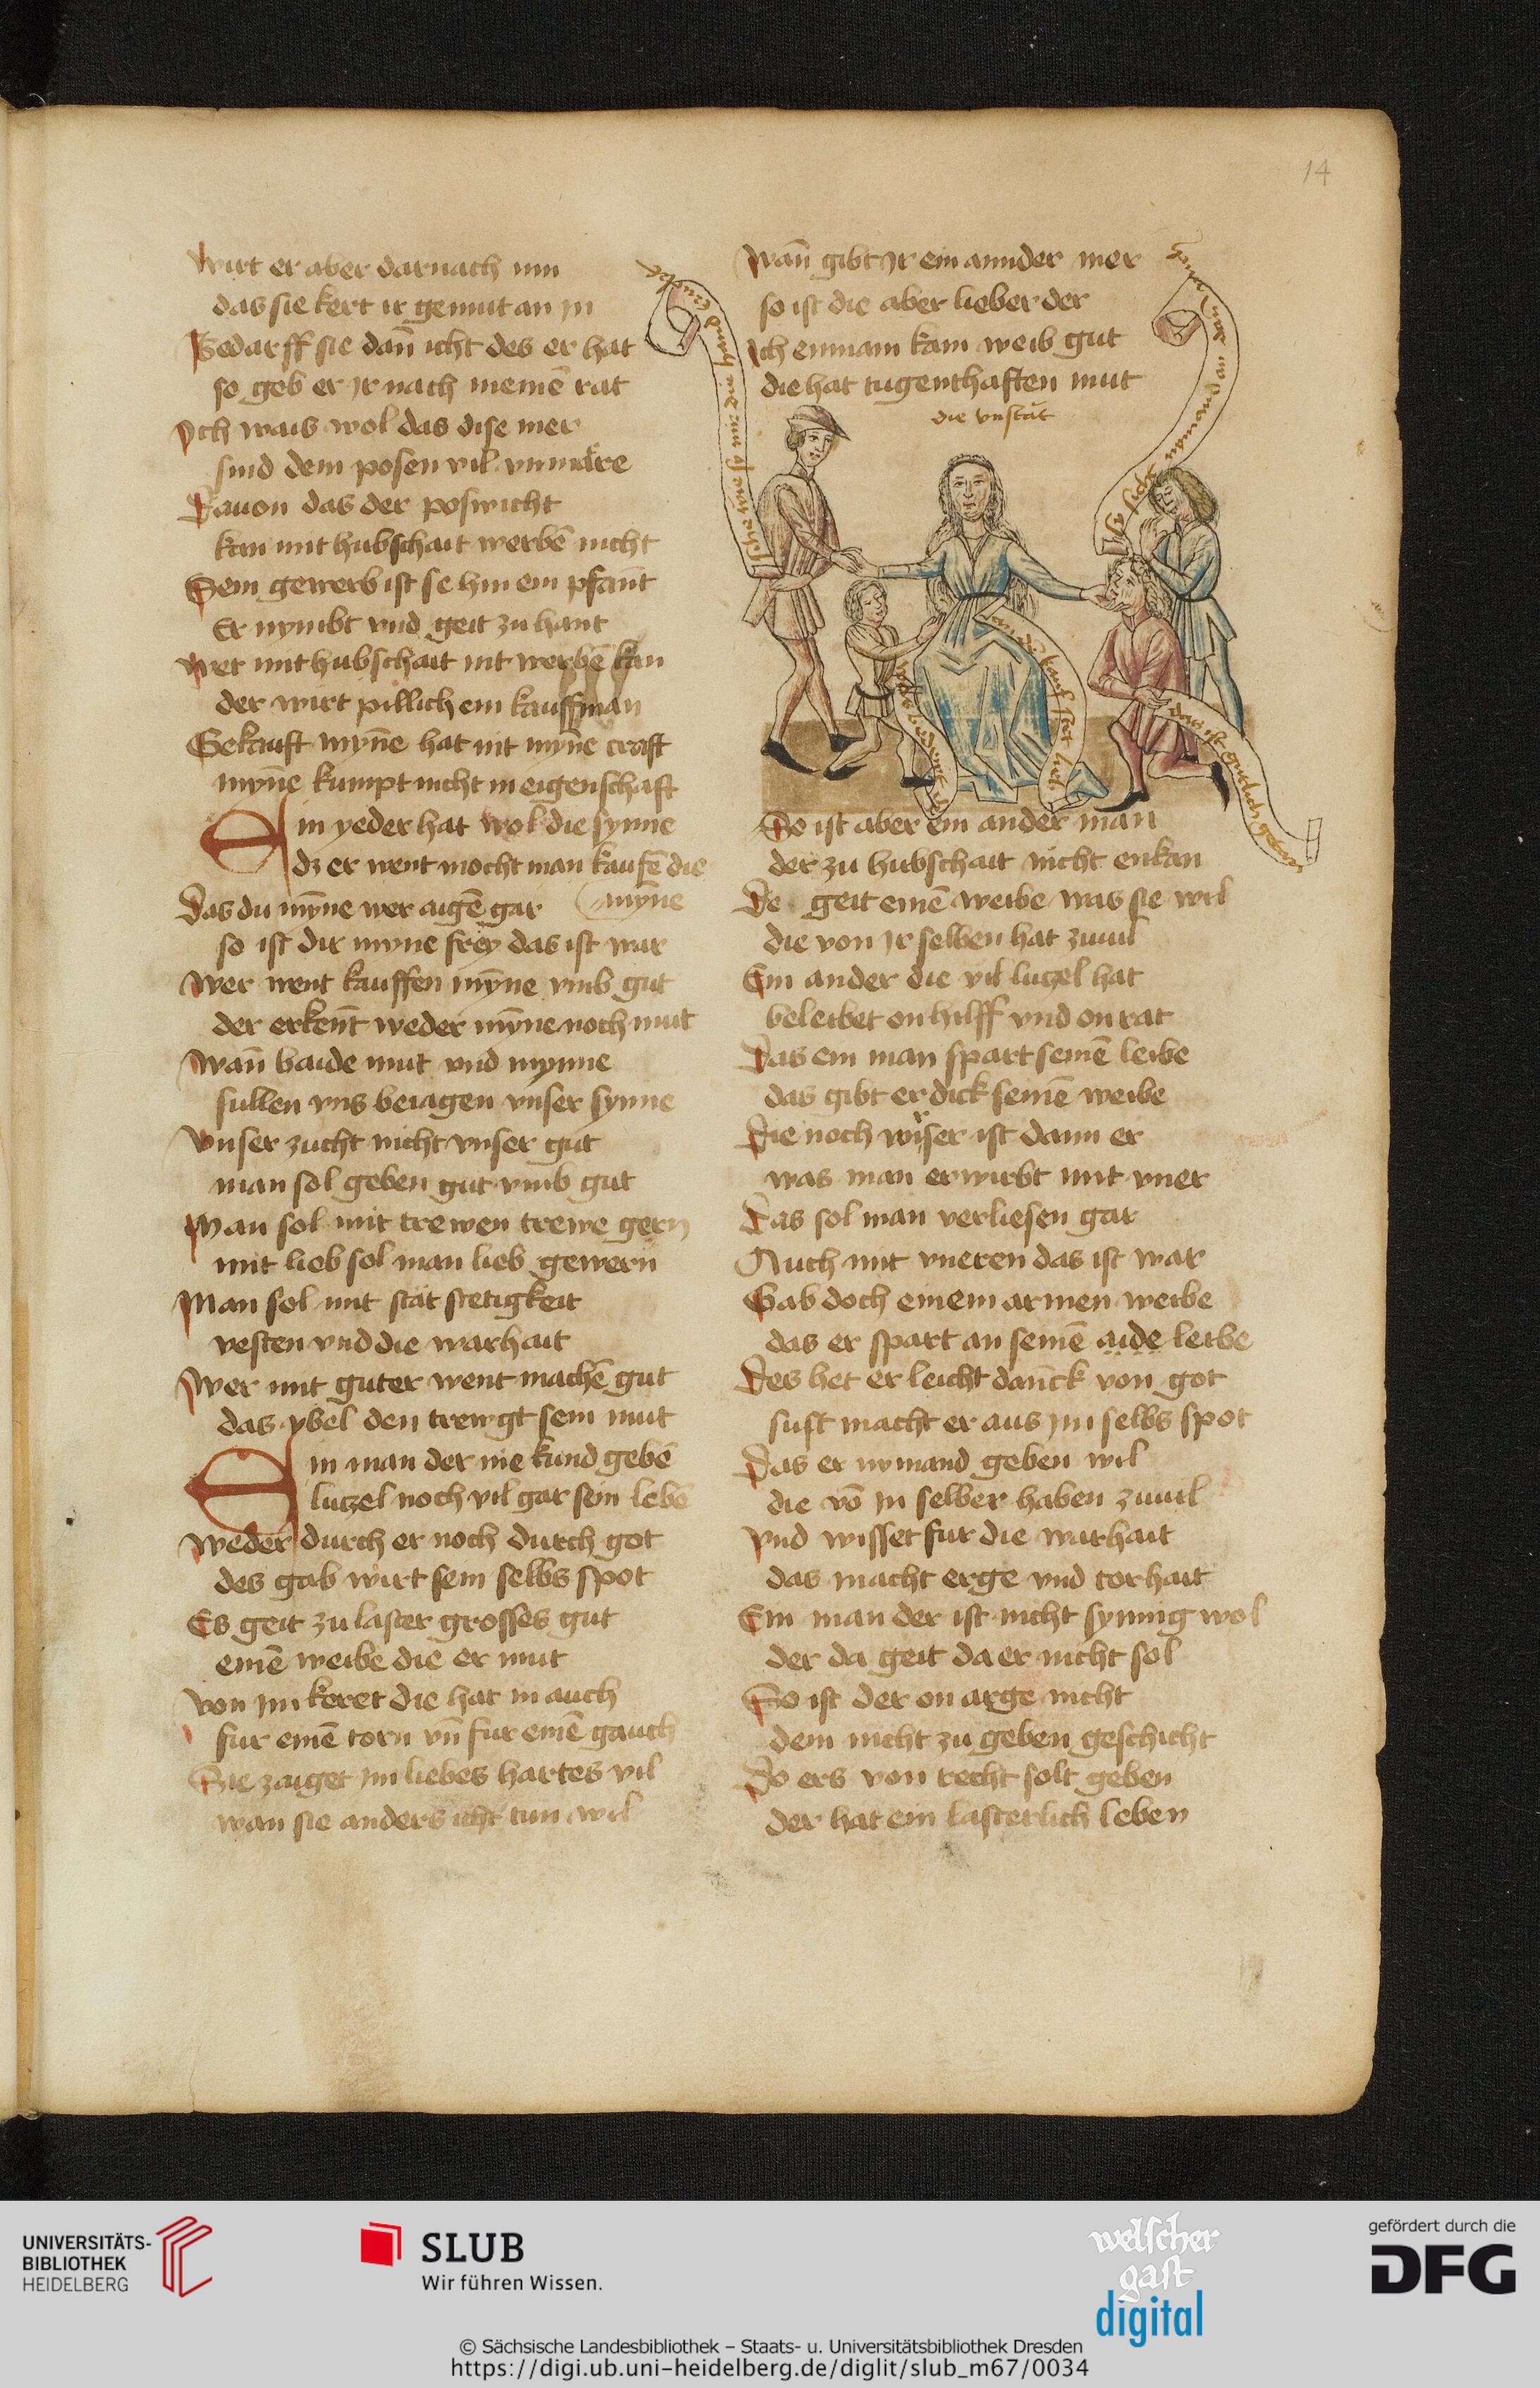 14
Wirt er aber darnach inn
das sie kert ir gemut an in
Bedarff sie dañ icht des er hat
so geb er Jr nach meinē rat
Ich wais wol das dise mer
sind dem posen vil vnmäre
Dauon das der poswicht
kan mit hubschait werbē nicht
Sein gewerb ist se hin ein pfant
Er nymbt vnd geit zu hant
wer mit hubschait nit werbē kan
der wirt pillich ein kauffman
Gekauft myñe hat nit myñe craft
myñe kumpt nicht in eigenschaft
Ein yeder hat wol die synne
dz er went mocht man kaufē die
myñe
Das du myñe wer aigē gar
so ist dir myne frey das ist war
Wer went kauffen myñe vmb gut
der erkeñt weder myñe noch mut
Wañ baide mut vnd mynne
sullen vns beiagen vnser synne
Vnser zucht nicht vnser gut
man sol geben gut vmb gut
Man sol mit trewen trewe gern
mit lieb sol man lieb gewern
Man sol mit stät stetigkeit
vesten vnd die warhait
Wer mit guter went machē gut
das ybel den trewgt sein mut
Ein man der nie kund gebē
lutzel noch vil gar sein lebē
weder durch er noch durch got
des gab wirt sein selbs spot
Es geit zu laster grosses gut
einē weibe die er mut
Von im keret die hat in auch
fur einē torn vñ fur einē gauch
Sie zaiget im liebes hartes vil
wan sie anders icht tun wil
Wañ gibt Jr ein annder mer
so ist die aber lieber der
Ich enmain kain weib gut
die hat tugenthaften mut
die vnstät
ich sich nymand an
das ist gütlich geben
So ist aber ein ander man
der zu hubschait nicht enkan
De geit einē weibe was sie wil
die von Jr selben hat zuuil
Ein ander die vil lutzel hat
beleibet on hilff vnd on rat
Das ein man spart seinē leibe
das gibt er dick seinē weibe
Die noch wiser ist dann er
was man erwirbt mit vner
Das sol man verliesen gar
Auch mit vneren das ist war
Gab doch einem armen weibe
das er spart an seinē aide leibe
Des het er leicht danck von got
sust macht er aus im selbs spot
Das er nymand geben wil
die vō in selber haben zuuil
Vnd wisset fur die warhait
das macht erge vnd torhait
Ein man der ist nicht synnig wol
der da geit da er nicht sol
So ist der on arge nicht
dem nicht zu geben geschicht
Do ers von recht solt geben
der hat ein lasterlich leben
UNIVERSITÄTS-
BIBLIOTHEK
HEIDELBERG
SLUB
Wir führen Wissen.
welscher
gast
digital
gefördert durch die
DFG
© Sächsische Landesbibliothek – Staats- u. Universitätsbibliothek Dresden
https://digi.ub.uni-heidelberg.de/diglit/slub_m67/0034